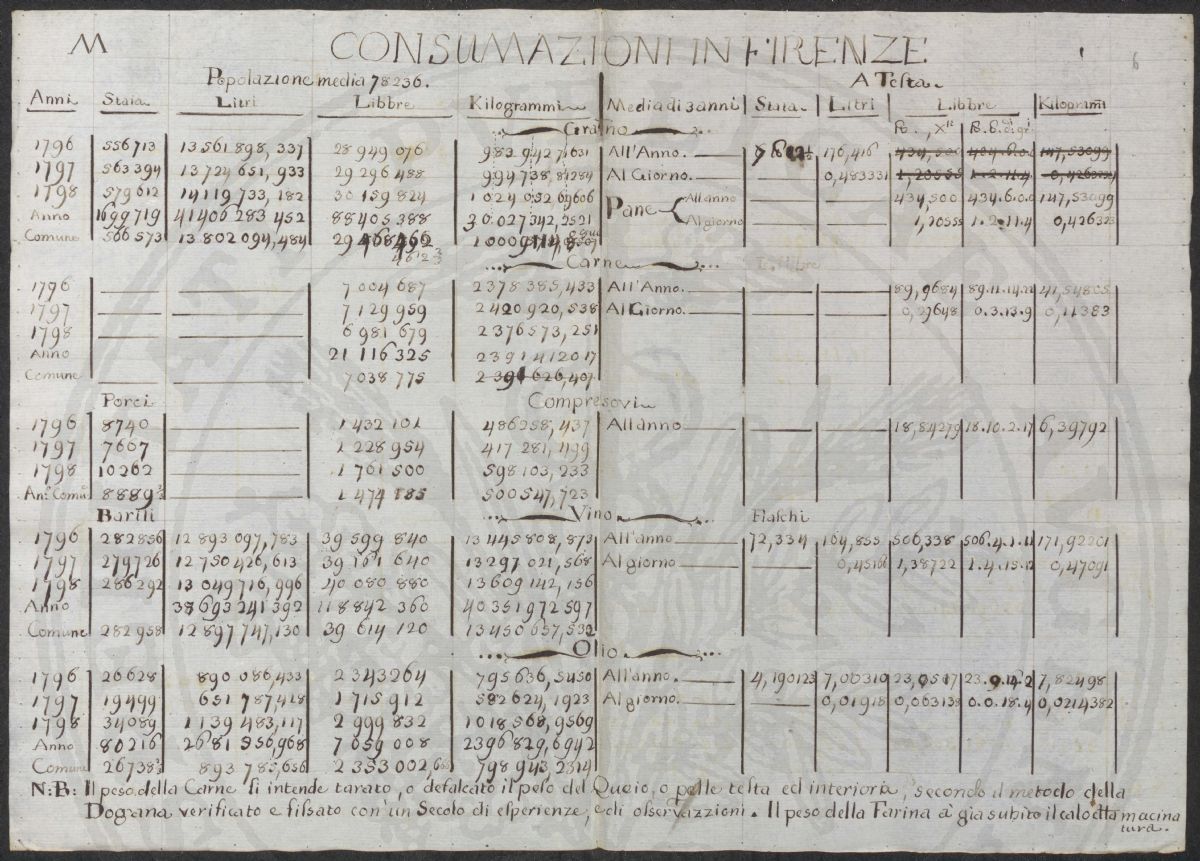 M CONSUMAZIONI IN FIRENZE 6
Popolazione media 78236. A Testa.
Anni Staia Litri Libbre Kilogrammi Media di 3 anni Staia Litri Libbre Kilogrami
Grano
1796 556713 13561898,337 28949076 All'Anno. 176,416 434,500 147,53099
1797 563394 13724651,933 29296488 Al Giorno. 0,483331 1,20555 1.2.11.4
1798 579612 14119733,182 30159824 Pane All'anno 434,500 434.6.0.0 147,53099
Anno 1699719 41406283452 88405388 Al giorno 1,20555 1.2.11.4 0,426323
Comune 566573 13802094,484
Carne
1796 7004687 2378385,433 All'Anno. 89,9684 89.11.14.22 41,54805
1797 7129959 2420920,538 Al Giorno. 0,27648 0.3.13.9 0,11383
1798 6981679 2376573,251
Anno 21116325 2391412017
Comune 7038775
Porci Compresovi
1796 8740 1432101 486258,437 All'anno 18,84279 18.10.2.17 6,39792
1797 7667 1228954 417281,499
1798 10262 1761500 598103,233
An.º Comu. 8889⅔ 1474185 500547,723
Barili Vino Fiaschi
1796 282856 12893097,783 39599840 13445808,873 All'anno 72,334 164,855 506,338 506.4.1.11 171,92201
1797 279726 12750426,613 39161640 13297021,568 Al giorno 0,45166 1,38722 1.4.15.12 0,47091
1798 286292 13049716,996 40080880 13609142,156
Anno 38693241392 118842360 40351972597
Comune 282958 12897747,130 39614120 13450657,532
Olio
1796 26628 890086,433 2343264 795636,5450 All'anno. 4,190123 7,00319 7,82498
1797 19499 651787,418 1715912 582624,1923 Al giorno. 0,01918 0,063138 0.0.18.4 0,0214382
1798 34089 1139483,117 2999832 1018568,9569
Anno 80216 2681356,968 7059008 2396829,6942
Comune 26738⅔ 893785,656 2353002,66 798943,2314
N:B: Il peso della Carne si intende tarato, o defalcato il peso del Quoio, o pelle testa ed interiora, secondo il metodo della
Dogana verificato e fissato con un Secolo di esperienze, e di osservazzioni. Il peso della Farina à già subito il calo alla macina
tura.